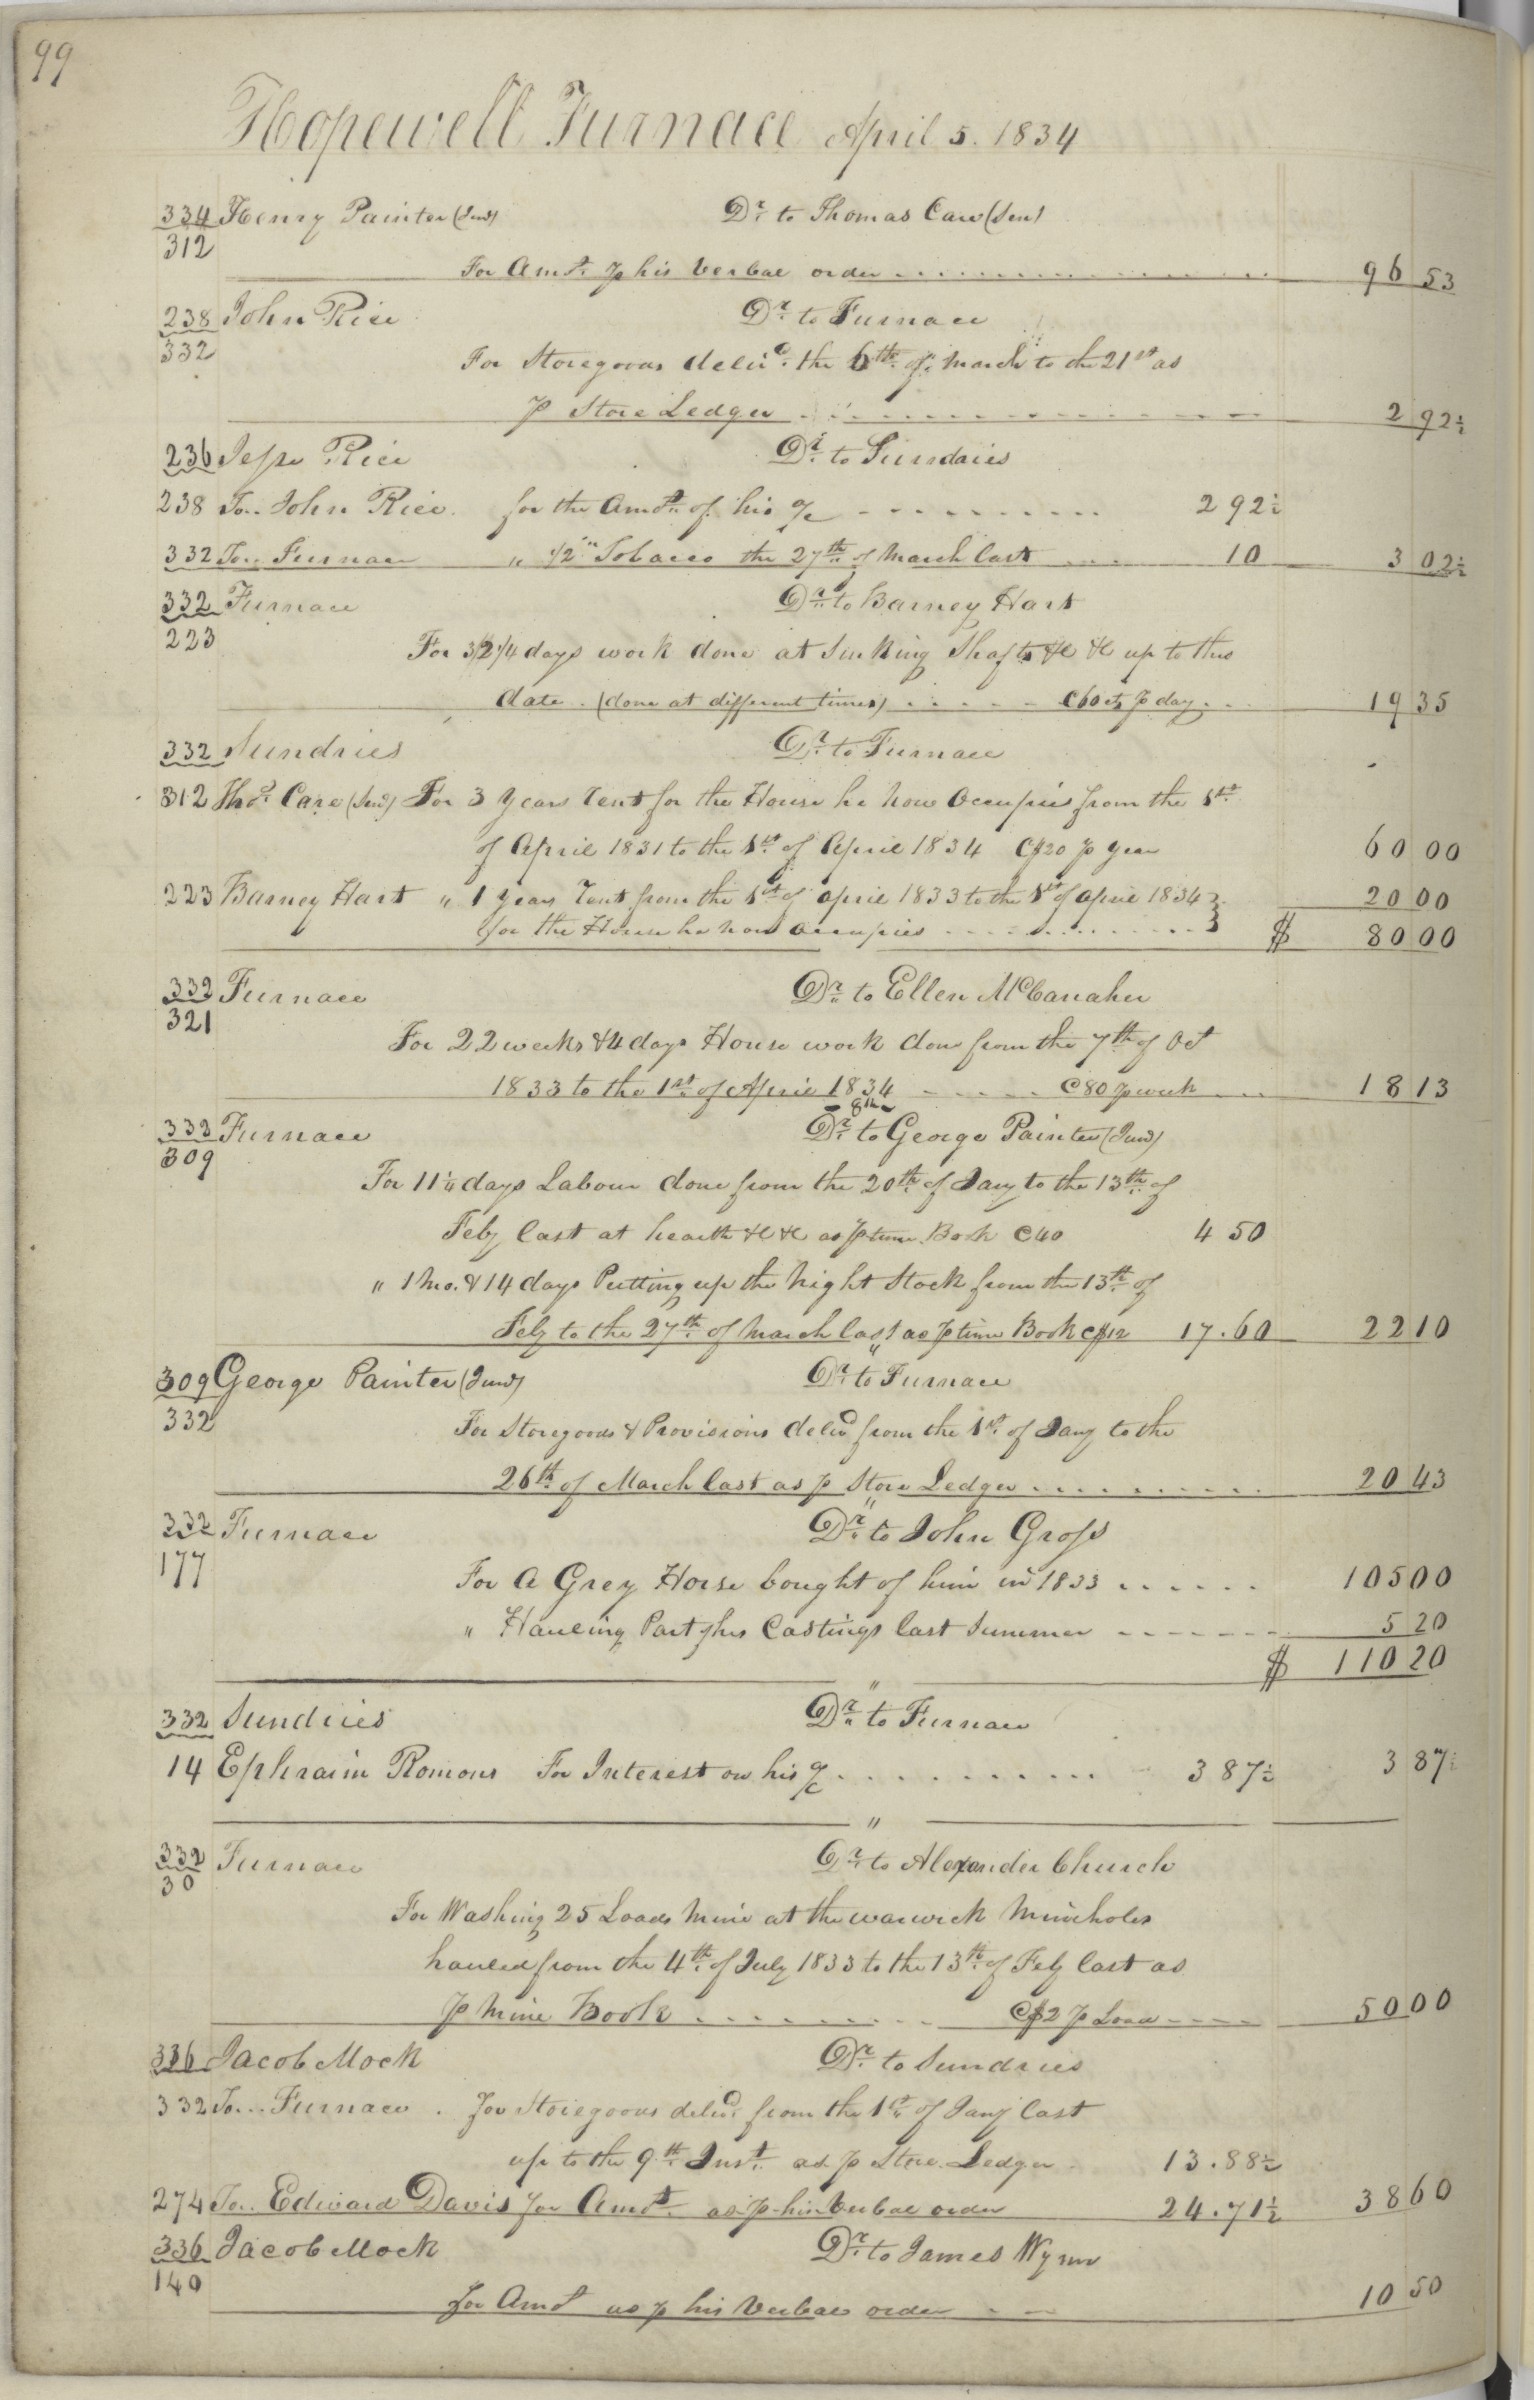 99
Hopewell Furnace April 5. 1834
334 Henry Painter (Senr) Dr. to Thomas Care (Senr)
312
For Amt. p his Verbal order 96 53
238 John Rice Dr. to Furnace
332
For Storegoods delivd. the 6th of March to the 21st as
p Store Ledger 2 92½
236 Jesse Rice Dr. to Sundries
238 To.. John Rice. for the Amot. of his a/c 2 92½
332 To.. Furnace " ½ " Tobacco the 27th of March last 10 3 02½
332 Furnace Dr. to Barney Hart
223
For 32¼ days work done at Sinking Shafts &c &c up to this
date. (done at different times) @60 cts p day 19 35
332 Sundries Dr. to Furnace
312 Thos. Care (Senr) For 3 Years Rent for the House he now Occupies from the 1st
of April 1831 to the 1st of April 1834 @$20 p Year 60 00
223 Barney Hart " 1 Years Rent from the 1st of April 1833 to the 1st of April 1834
for the House he now occupies 20 00
$ 80 00
332 Furnace Dr. to Ellen McCanaher
321
For 22 weeks & 4 days House work done from the 7th of Oct
1833 to the 1st of April 1834 @80 p week 18 13
8th
332 Furnace Dr. to George Painter (Junr)
309
For 11¼ days Labour done from the 20th of Jany to the 13th of
Feby last at hearth &c &c as p time Book @40 4 50
" 1 Mo. & 14 days Putting up the Night Stock from the 13th of
Feby to the 27th of March last as p time Book @$12 17.60 22 10
"
309 George Painter (Junr) Dr. to Furnace
332
For Storegoods & Provisions delivd from the 1st of Jany to the
26th of March last as p Store Ledger 20 43
"
332 Furnace Dr. to John Gross
177
For A Grey Horse bought of him in 1833 105 00
" Hauling Part of his Castings last Summer 5 20
$ 110 20
"
332 Sundries Dr. to Furnace
14 Ephraim Romons For Interest on his a/c 3 87½ 3 87½
"
332 Furnace Dr. to Alexander Church
30
For Washing 25 Loads Mine at the Warwick Mineholes
hauled from the 4th of July 1833 to the 13th of Feby last as
p Mine Book @$2 p Load 50 00
336 Jacob Mock Dr. to Sundries
332 To... Furnace. for Storegoods delivd. from the 1st of Jany last
up to the 9th Inst. as p Store Ledger 13.88½
274 To.. Edward Davis for Amot. as p his Verbal order 24.71½ 38 60
336 Jacob Mock Dr. to James Wynn
140
for Amot as p his Verbal order 10 50